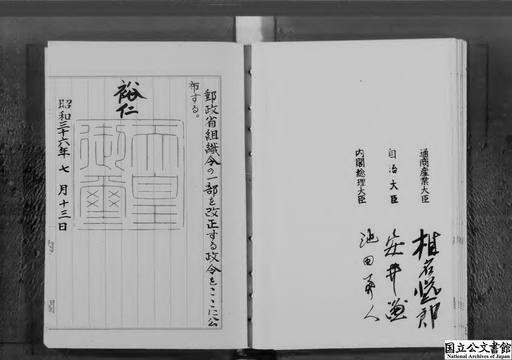 通商産業大臣 椎名悦三郎
自治大臣 安井謙
内閣総理大臣 池田勇人
郵政省組織令の一部を改正する政令をここに公
布する。
裕仁
天皇
御璽
昭和三十六年 七 月 十三 日
国立公文書館
National Archives of Japan